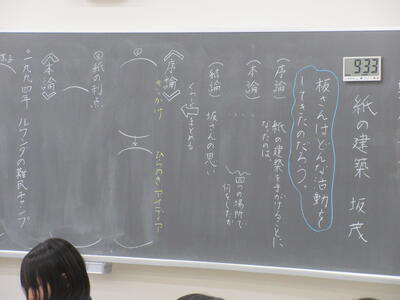 9:33
紙の建築 坂茂
板さんはどんな活動を
してきたのだろう。
(序論) 紙の建築を手がけることに
なったのは、
(本論) ・・・・ 四つの場所で
何をしたか
(結論) 坂さんの思い
くわしくまとめる
《序論》
きっかけ ひらめき アイディア
①
②紙の利点
《本論》
一九九四年 ルワンダの難民キャンプ